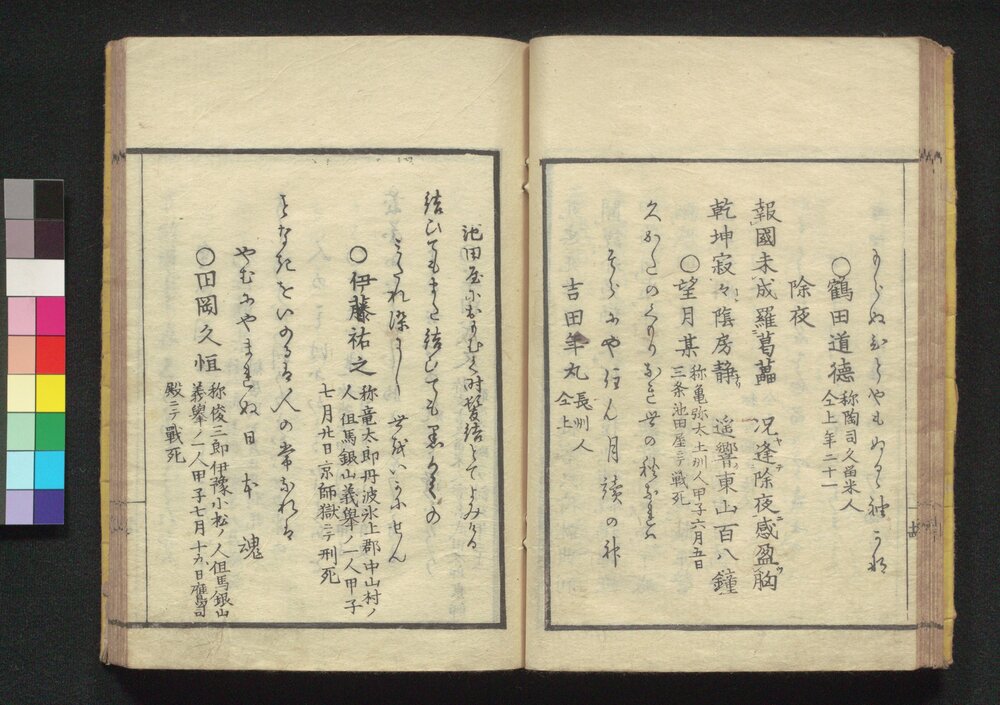 もらぬひらやもぬるゝ袖かな
○鶴田道德 称陶司久留米人
仝上年二十一
除夜
報國未成羅葛藟 况逢除夜感盈胸
乾坤寂々陰房静 遥響東山百八鐘
○望月某 称亀弥太土州人甲子六月五日
三条池田屋ニテ戦死
久かたのくもりなき世の
そらにや住ん月讀の神
吉田年丸 長州人
仝上
池田屋におもむく時髻結とてよみける
結ひてもまた結ひても黒かみの
みたれ染にし世をいかにせん
○伊藤祐之 称竜太郎丹波氷上郡中山村ノ
人但馬銀山義舉ノ一人甲子
七月廿日京師獄ニテ刑死
をいのるは人の常なれは
やむにやまれぬ日本魂
○田岡久恒 称俊三郎伊豫小松ノ人但馬銀山
義舉ノ一人甲子七月十九日鷹司
殿ニテ戰死